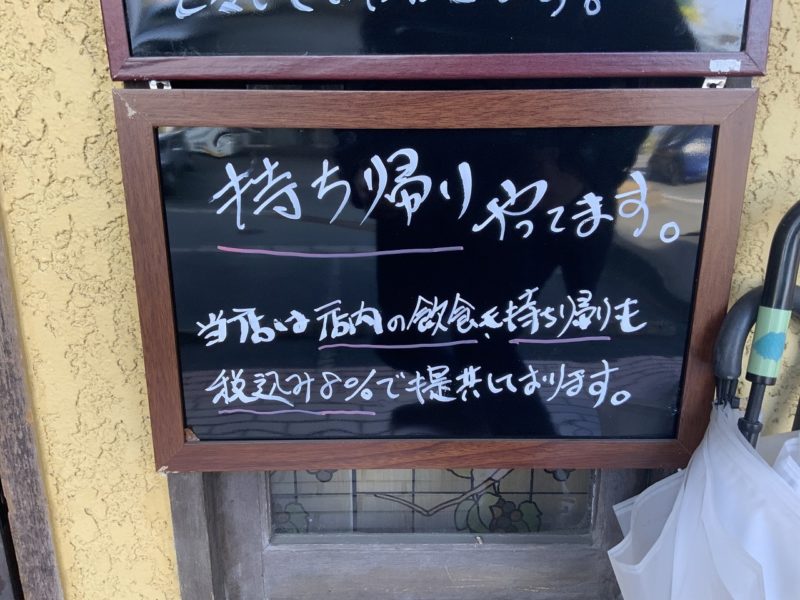 持ち帰りやってます。
当店は店内の飲食も持ち帰りも
税込み8%で提供しております。